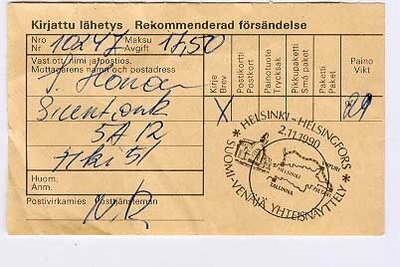 Kirjattu lähetys Rekommenderad försändelse
Nro Nr 10247 Maksu Avgift 17,50
Vast.ott./nimi ja/postios.
Mottagarens namn och postadress
5A12
Hki 51
Huom.
Anm.
Postivirkamies Posttjänsteman
Kirje Brev
Postikortti Postkort
Painotuote Trycksak
Pikkupaketti Små paket
Paketti Paket
Paino Vikt
X
29
* HELSINKI - HELSINGFORS *
2.11.1990
VIIPURI
HELSINKI
TALLINNA
SUOMI-VENÄJÄ YHTEISNÄYTTELY